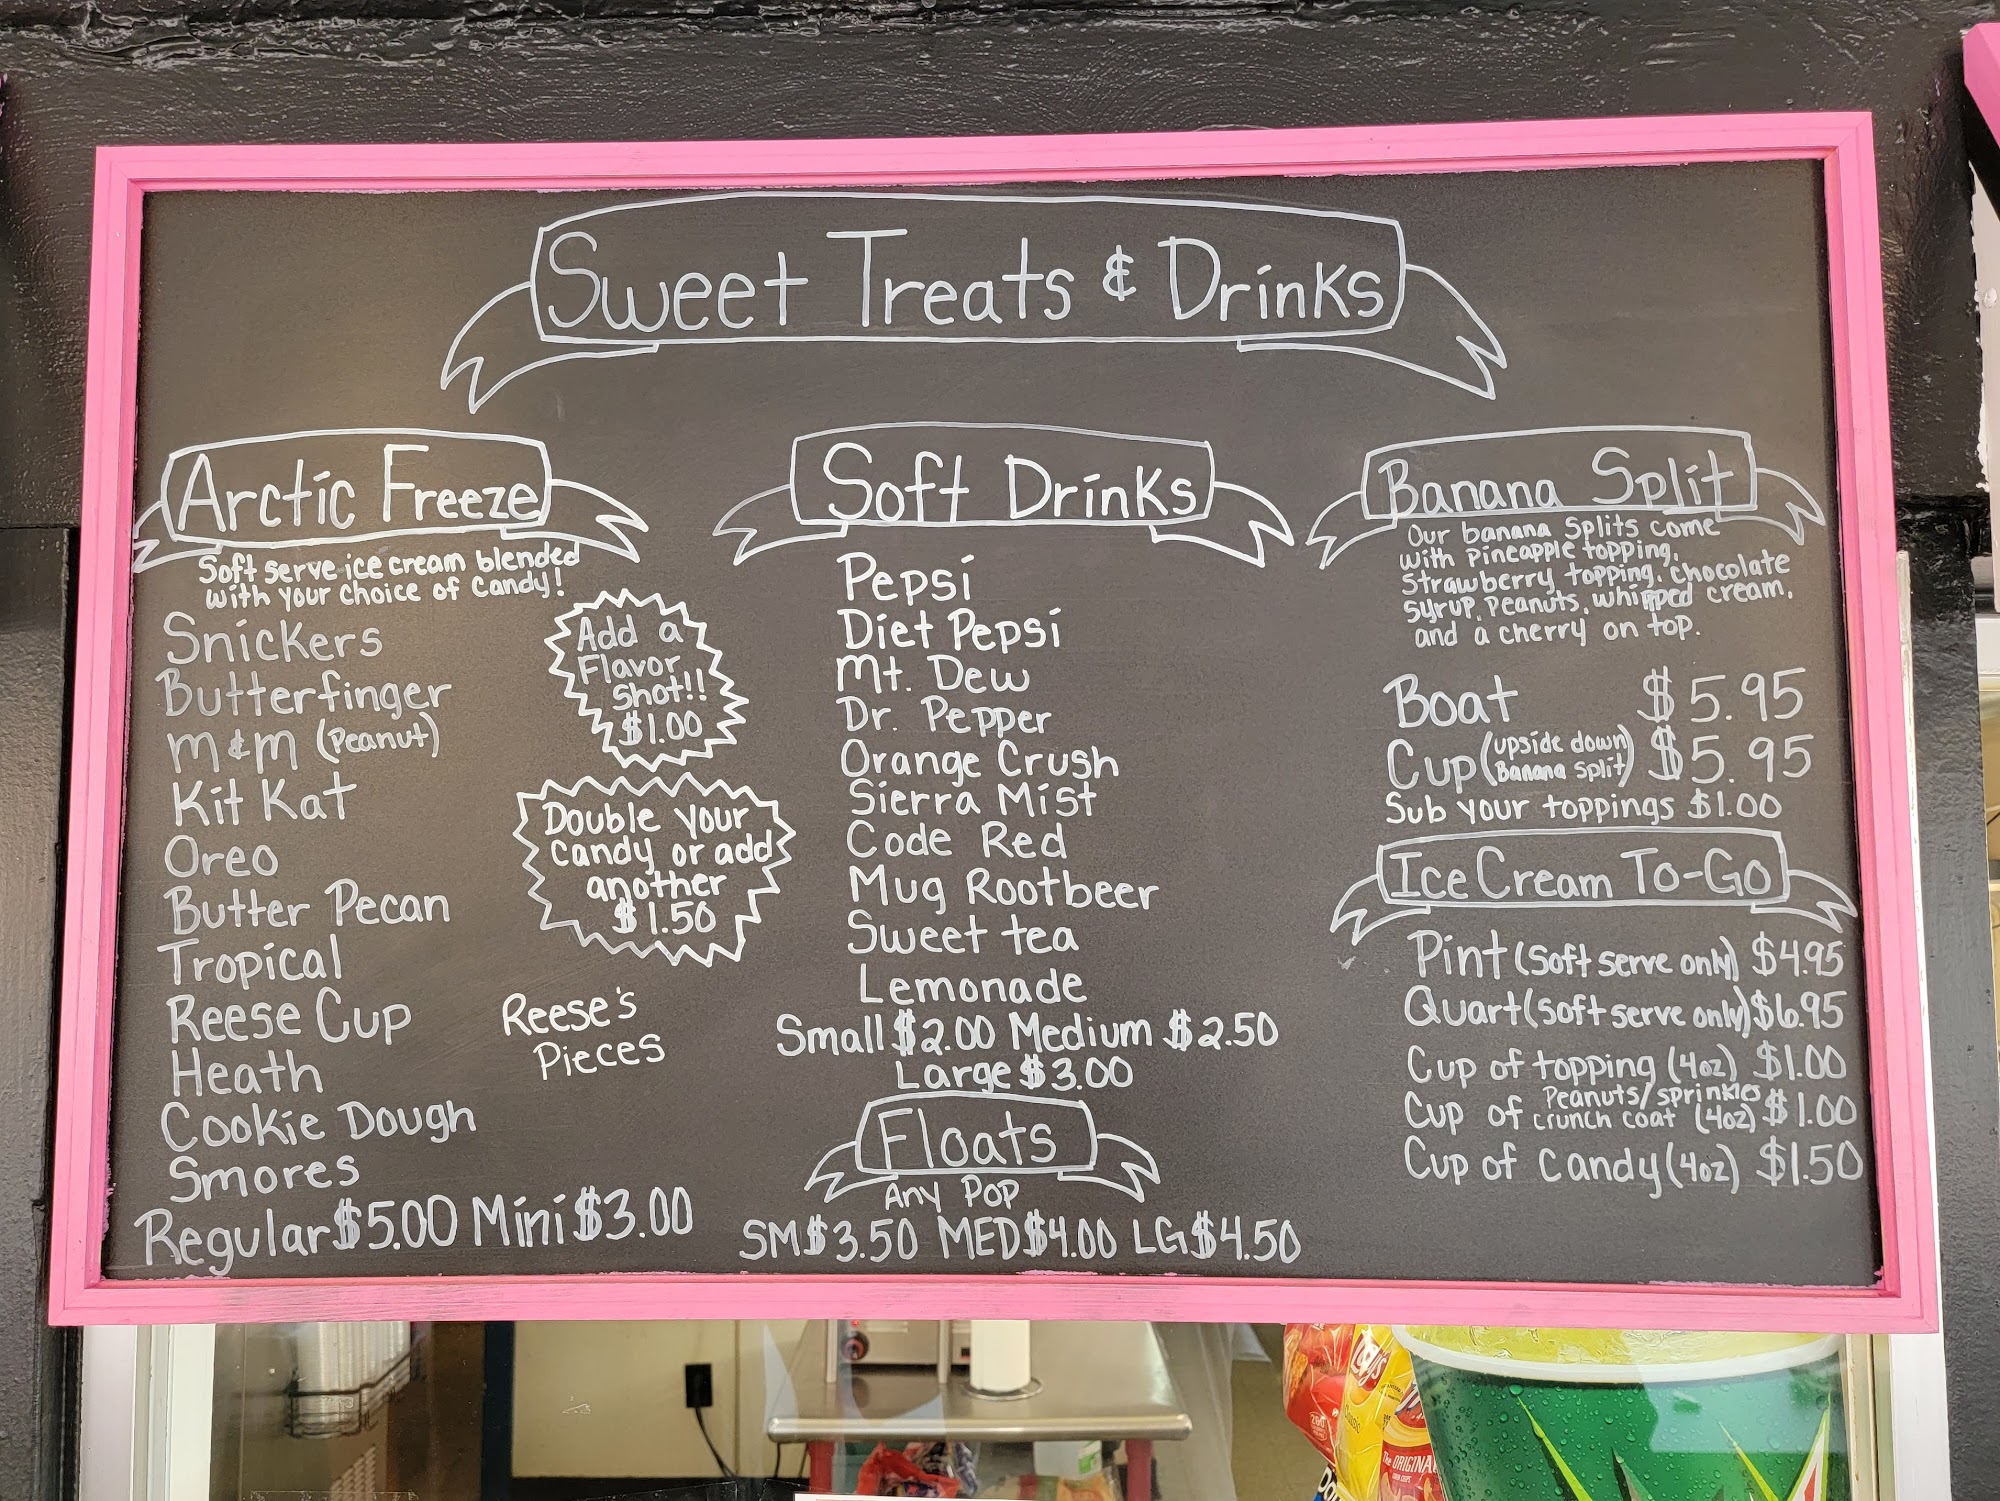 Sweet Treats & Drinks
Arctic Freeze
Soft serve ice cream blended
with your choice of candy!
Snickers
Butterfinger
M&M (Peanut)
Kit Kat
Oreo
Butter Pecan
Tropical
Reese Cup
Heath
Cookie Dough
Smores
Regular $5.00 Mini $3.00
Add a
Flavor
Shot!!
$1.00
Double your
candy or add
another
$1.50
Reese's
Pieces
Soft Drinks
Pepsi
Diet Pepsi
Mt. Dew
Dr. Pepper
Orange Crush
Sierra Mist
Code Red
Mug Rootbeer
Sweet tea
Lemonade
Small $2.00 Medium $2.50
Large $3.00
Floats
Any Pop
SM $3.50 MED $4.00 LG $4.50
Banana Split
Our banana splits come
with pineapple topping,
strawberry topping, chocolate
syrup, peanuts, whipped cream,
and a cherry on top.
Boat $5.95
Cup (upside down Banana Split) $5.95
Sub your toppings $1.00
Ice Cream To-Go
Pint (soft serve only) $4.95
Quart (soft serve only) $6.95
Cup of topping (4oz) $1.00
Cup of Peanuts/sprinkles crunch coat (4oz) $1.00
Cup of candy (4oz) $1.50
Lay's
ORIGINAL